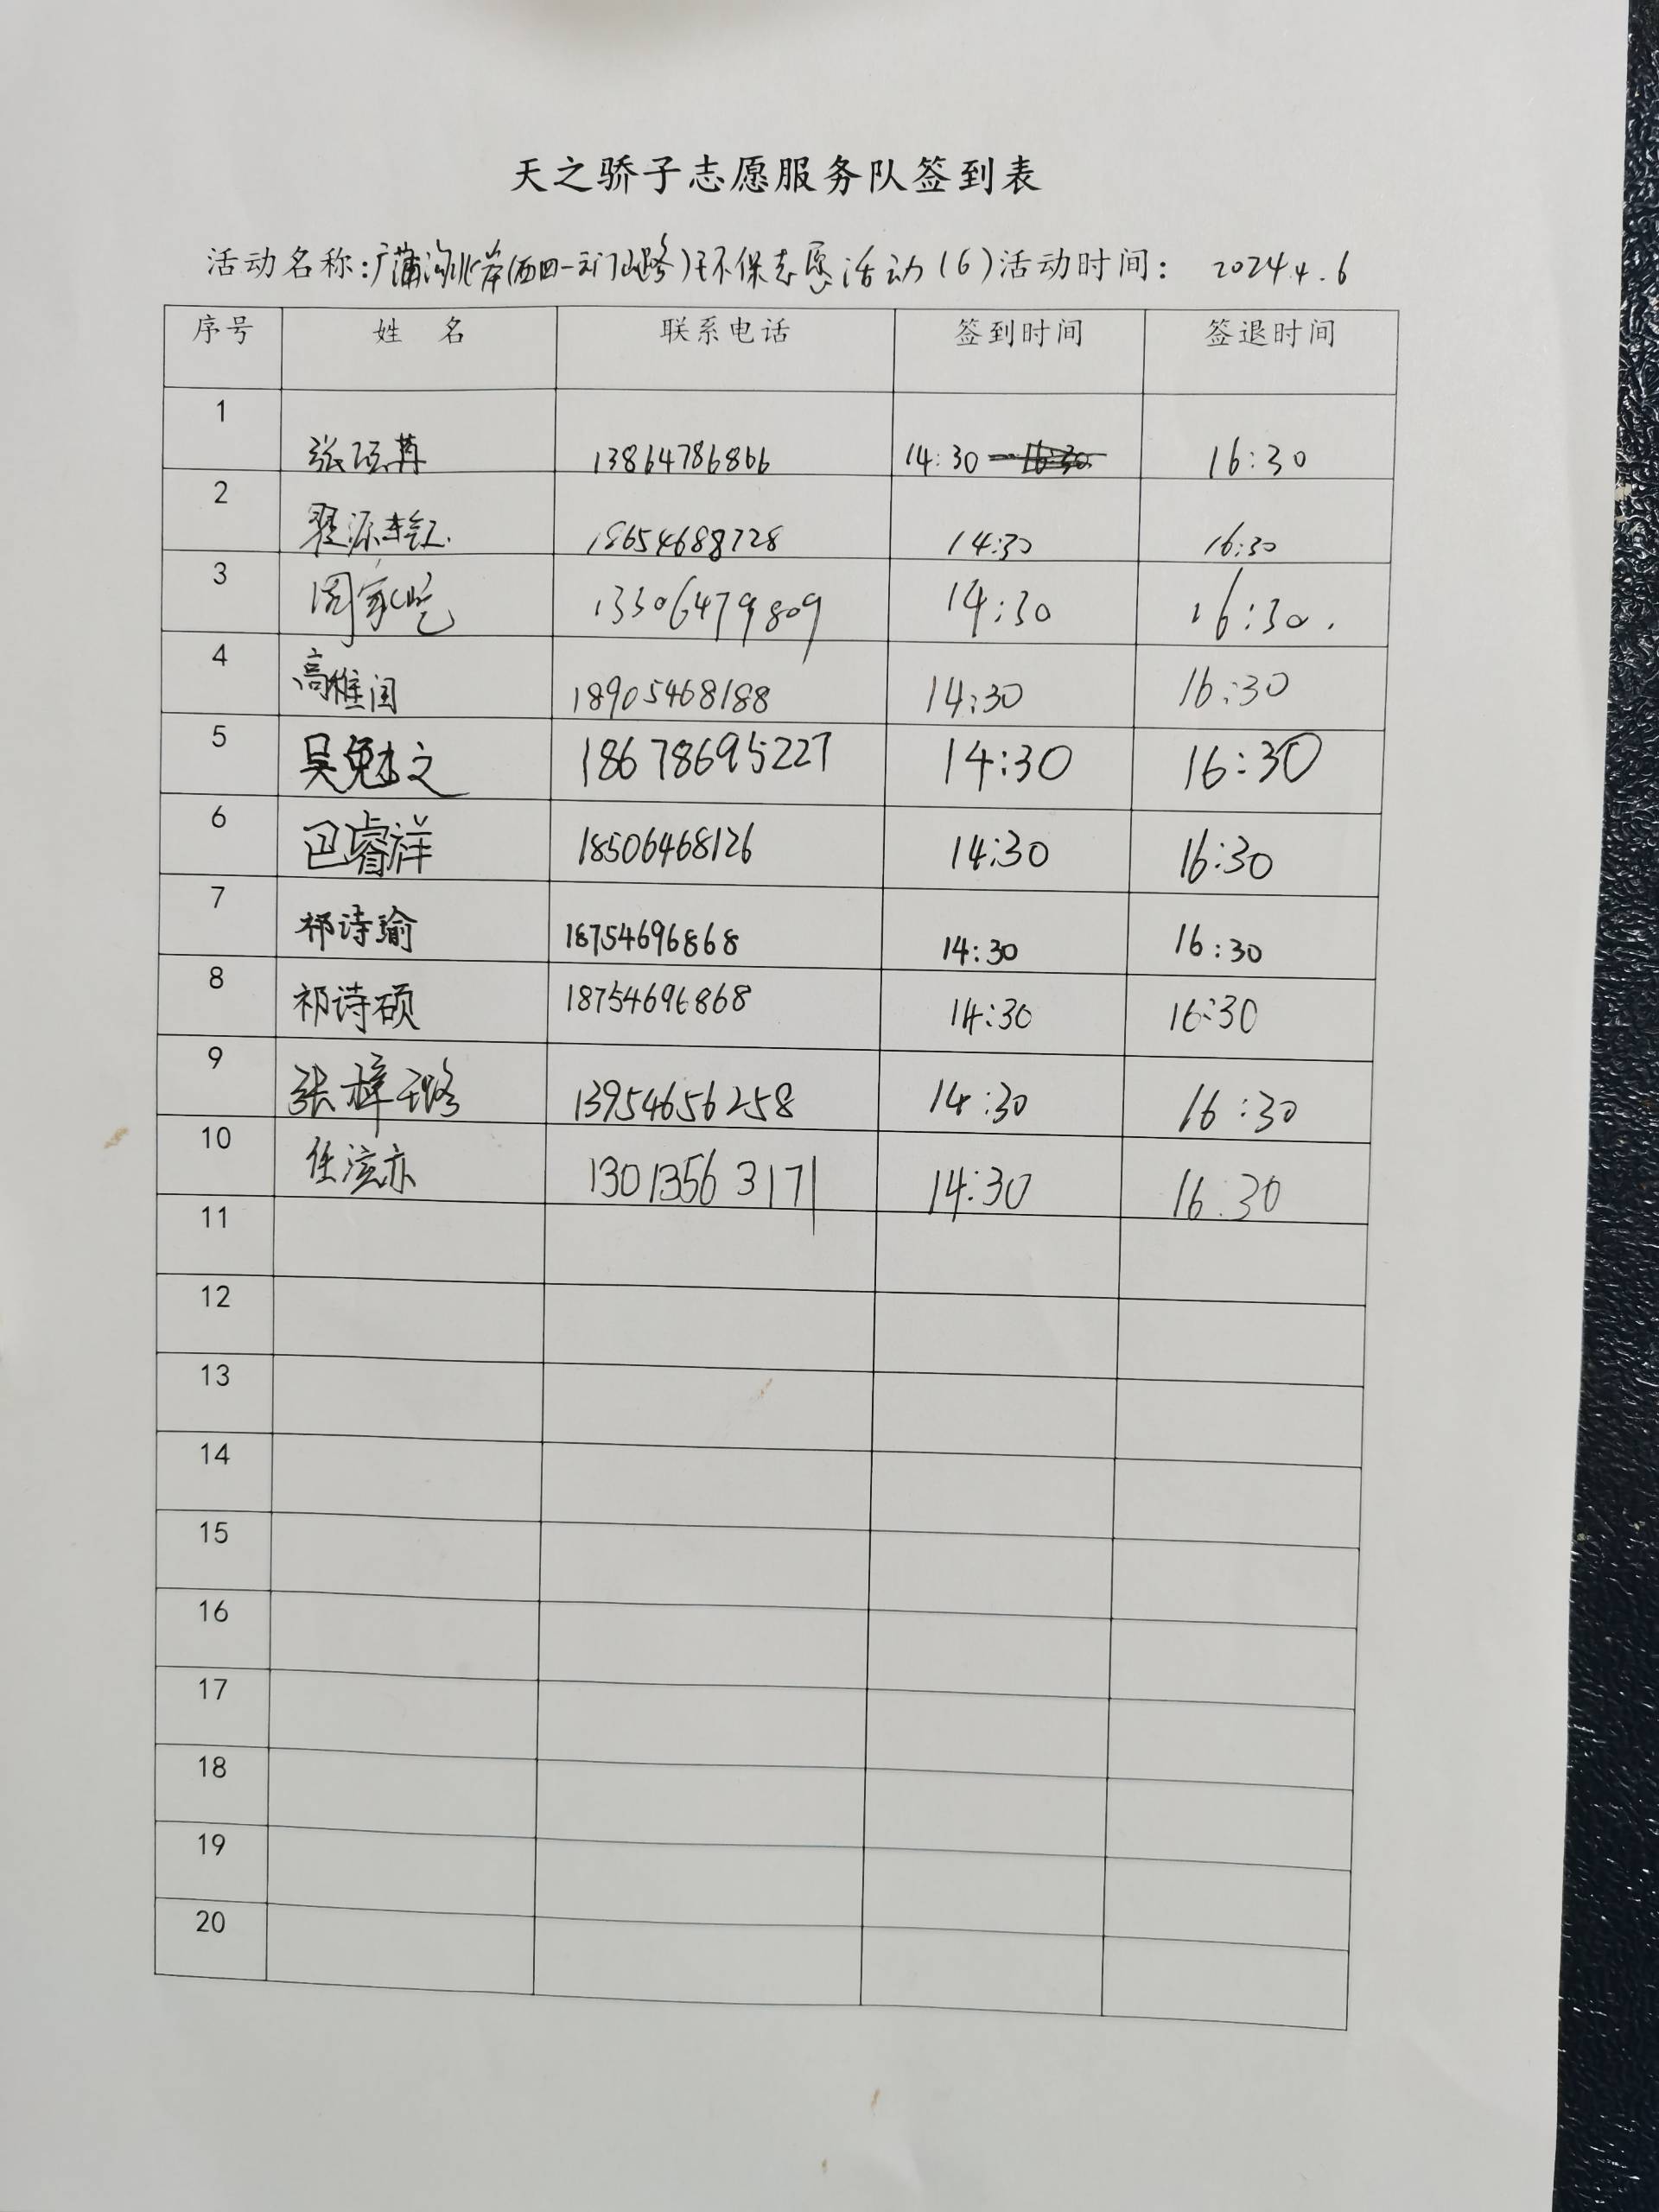 天之骄子志愿服务队签到表
活动名称:广蒲沟北岸(西四一天门山路)环保志愿活动(6)活动时间: 2024.4.6
序号 姓 名 联系电话 签到时间 签退时间
1 张 13864786866 14:30 16:30
2 翟源 18654688728 14:30 16:30
3 周家屹 13306479809 14:30 16:30.
4 高 18905468188 14:30 16:30
5 吴勉文 18678695227 14:30 16:30
6 巴睿祥 18506468126 14:30 16:30
7 祁诗瑜 18754696868 14:30 16:30
8 祁诗硕 18754696868 14:30 16:30
9 张梓璐 13954656258 14:30 16:30
10 任泫亦 13013563171 14:30 16:30
11
12
13
14
15
16
17
18
19
20